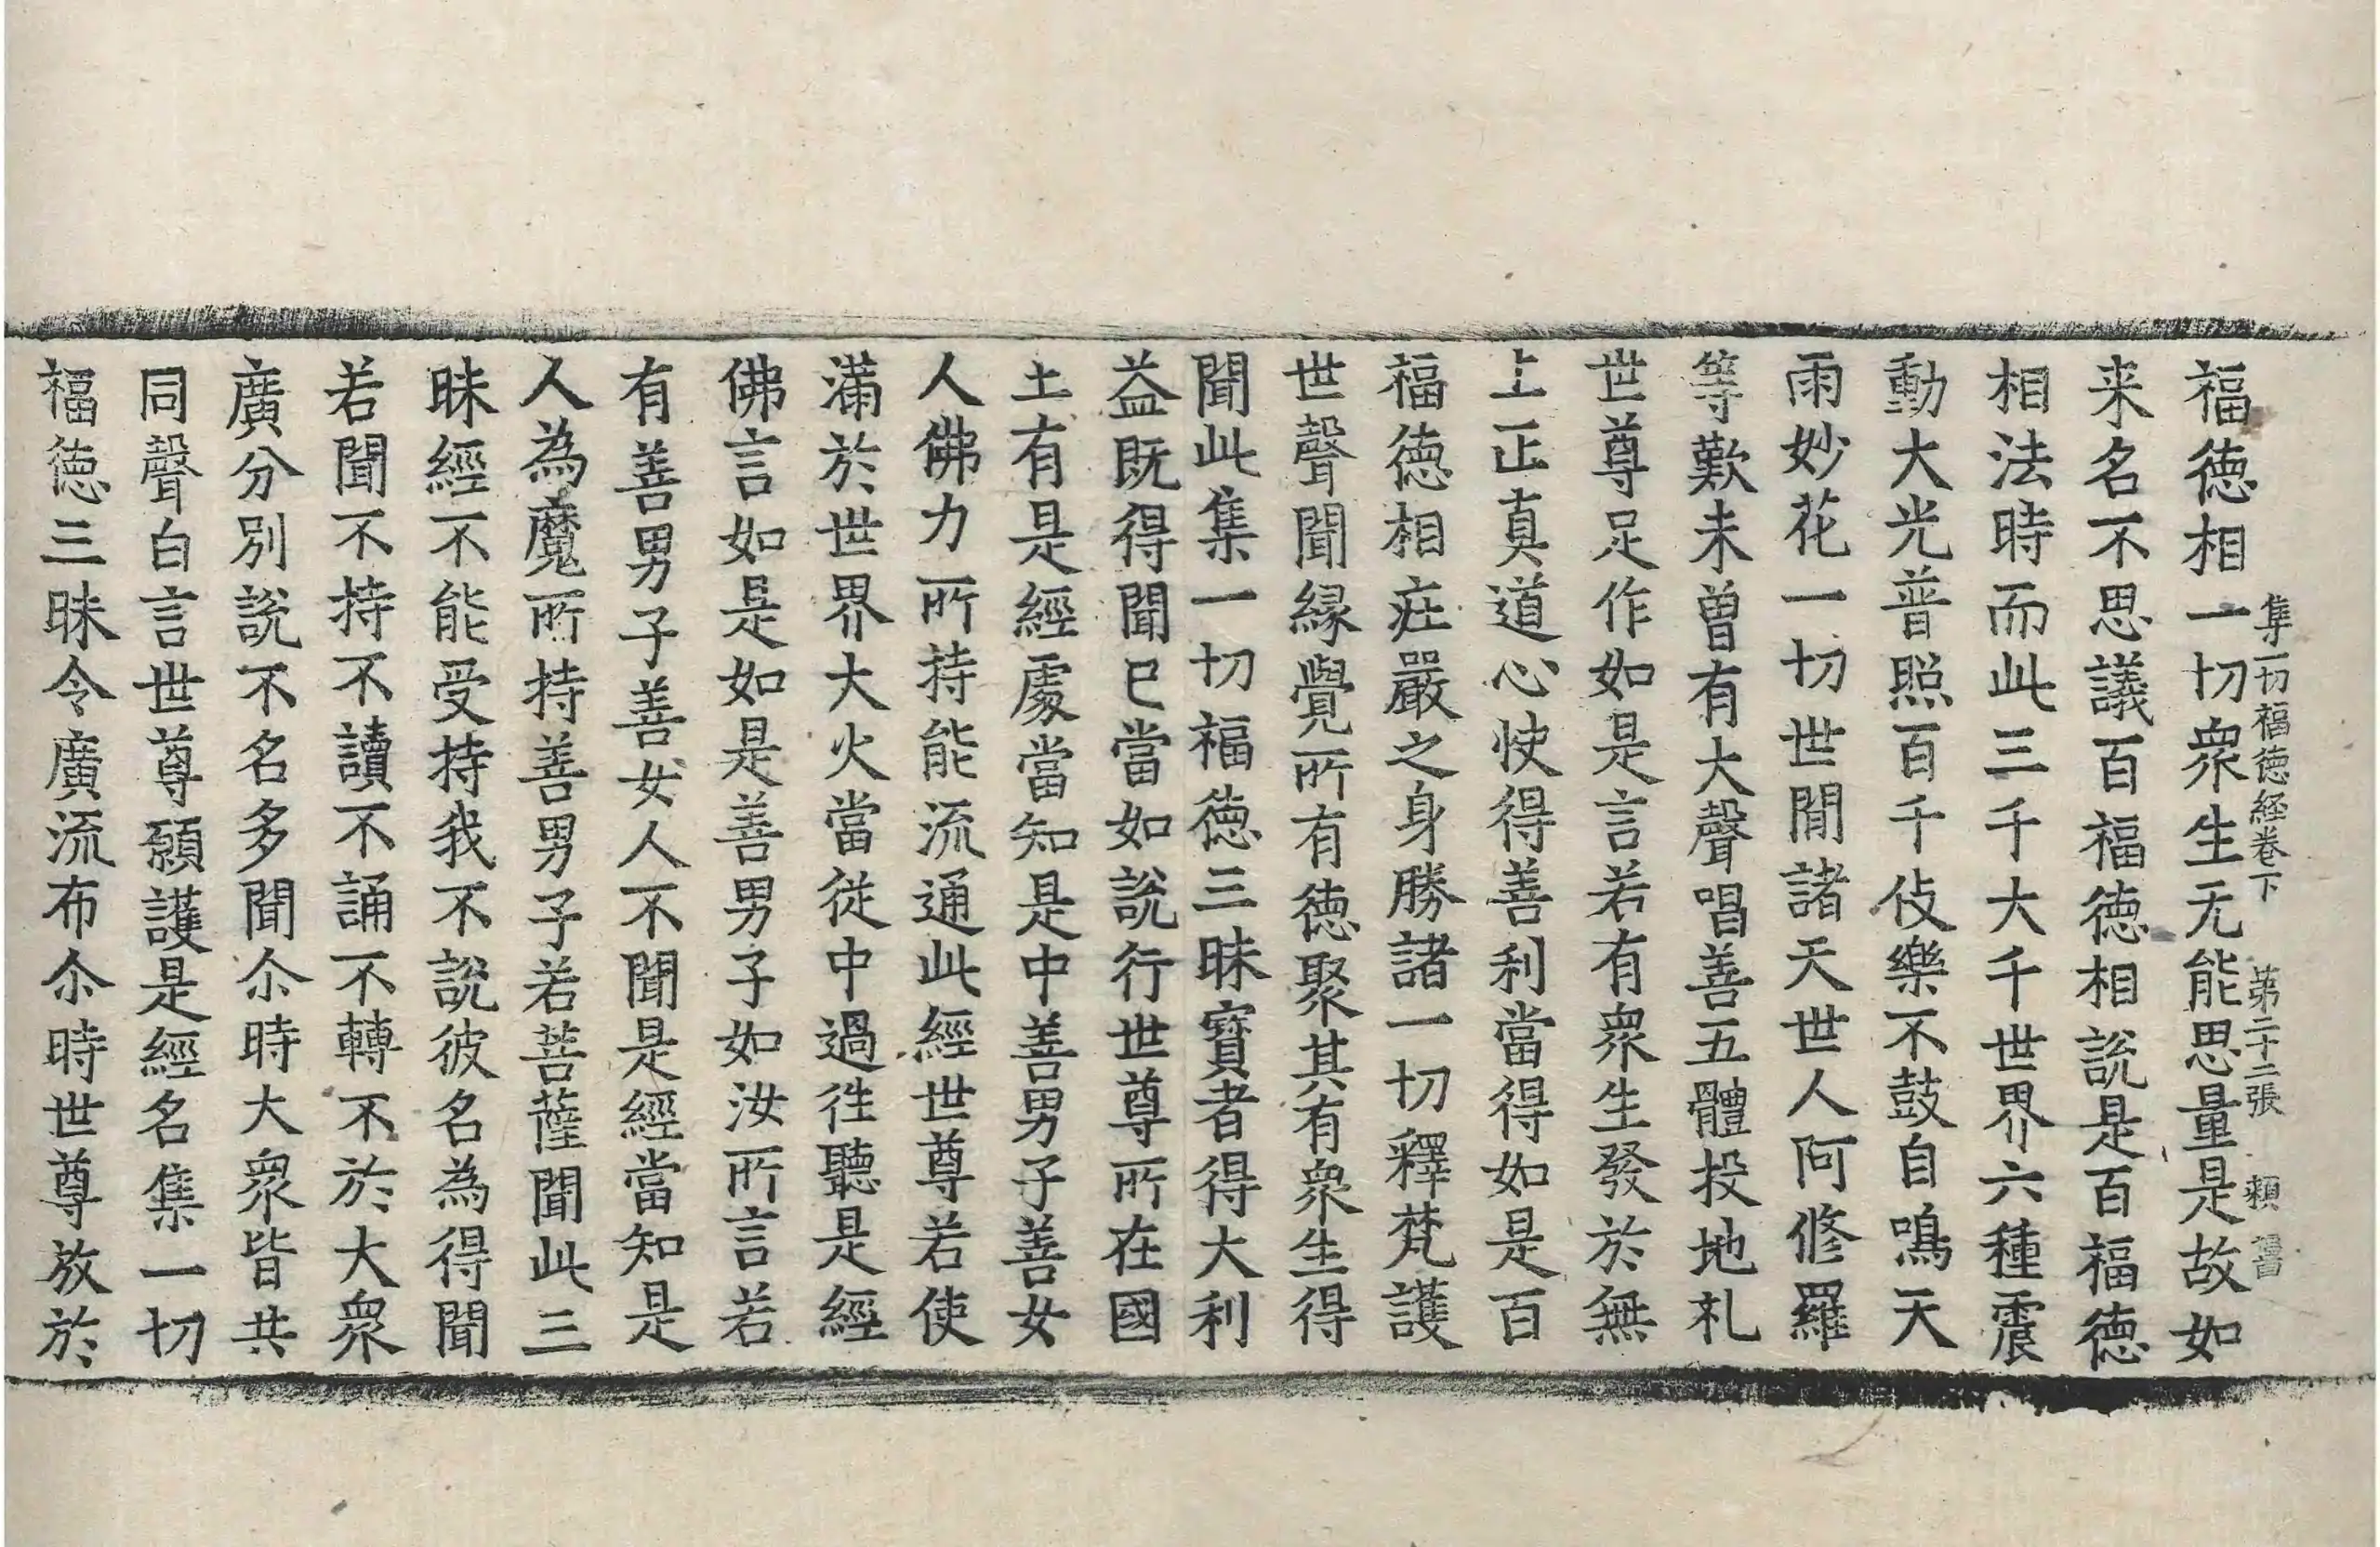 集一切福德経卷下　第二十二張　頼
福德相一切衆生无能思量是故如
来名不思議百福德相說是百福德
相法時而此三千大千世界六種震
動大光普照百千伎樂不鼓自鳴天
雨妙花一切世間諸天世人阿修羅
等歎未曽有大聲唱善五體投地礼
世尊足作如是言若有衆生發於無
上正真道心快得善利當得如是百
福德相庄嚴之身勝諸一切釋梵護
世聲聞縁覺所有德聚其有衆生得
聞此集一切福德三昧寶者得大利
益既得聞已當如說行世尊所在國
土有是經處當知是中善男子善女
人佛力所持能流通此經世尊若使
滿於世界大火當從中過往聽是經
佛言如是如是善男子如汝所言若
有善男子善女人不聞是經當知是
人為魔所持善男子若菩薩聞此三
昧經不能受持我不說彼名為得聞
若聞不持不讀不誦不轉不於大衆
廣分別說不名多聞尒時大衆皆共
同聲白言世尊願護是經名集一切
福德三昧令廣流布尒時世尊放於